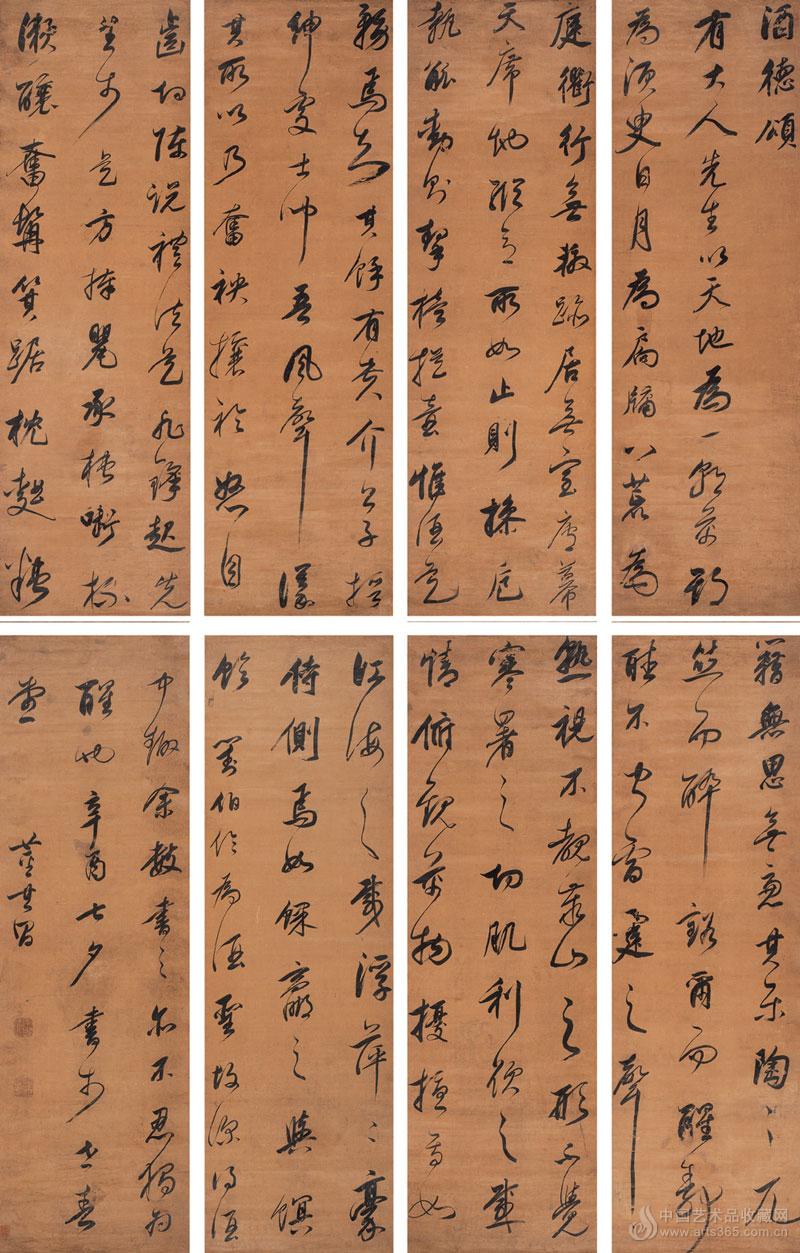 酒德頌
有大人先生以天地為一朝萬期
為須臾日月為扃牖八荒為
庭衢行無轍跡居無室廬幕
天席地縱意所如止則操卮
執觚動則挈榼提壺惟酒是
務焉知其餘有貴介公子搢
紳處士聞吾風聲議
其所以乃奮袂攘衿怒目
齒切陳說禮法是非鋒起先
生於是方捧甖承槽啣杯
漱醪奮髯箕踞枕麴糟
籍無思無慮其樂陶〻兀
然而醉豁爾而醒靜
聽不聞雷霆之聲
熟視不覩泰山之形不覺
寒暑之切肌利欲之感
情俯觀萬物擾擾焉如
江海之載浮萍二豪
侍側焉如蜾蠃之與螟
蛉 劉伯伶為酒聖故深得酒
中趣余數書之亦不忍獨為
醒也辛酉七夕書於世春
堂 董其昌
中国艺术品收藏网
www.arts365.com